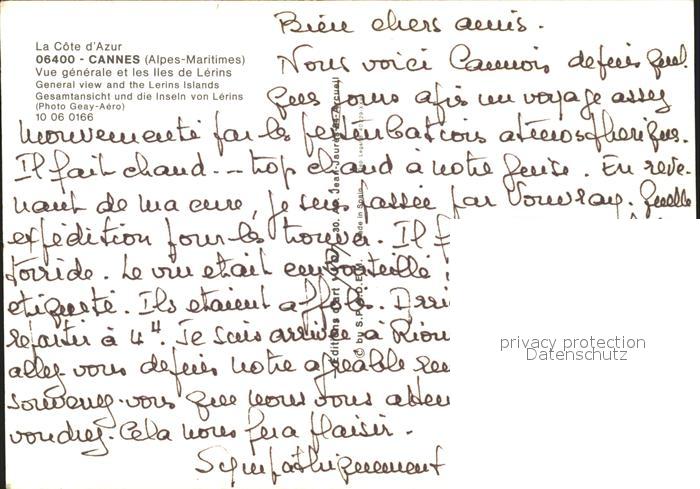 La Côte d'Azur
06400 - CANNES (Alpes-Maritimes)
Vue générale et les Iles de Lérins
General view and the Lerins Islands
Gesamtansicht und die Inseln von Lérins
(Photo Geay-Aéro)
10 06 0166
Bien chers amis.
Nous voici Cannois depuis quel
ques jours après un voyage assez
mouvementé par les perturbations atmosphériques.
Il fait chaud --- trop chaud à notre guise. En reve-
nant de ma cure, je suis passée par Vouvray. Quelle
expédition pour les trouver. Il f
torride. Le vin etait embouteillé
etiqueté. Ils etaient affolés. Arri
repartir à 4H. Je suis arrivée à Riom
allez vous depuis notre agréable ren
souvenez-vous que nous vous atten
voudrez. Cela nous fera plaisir.
Sympathiquement
Made in Spain
privacy protection
Datenschutz